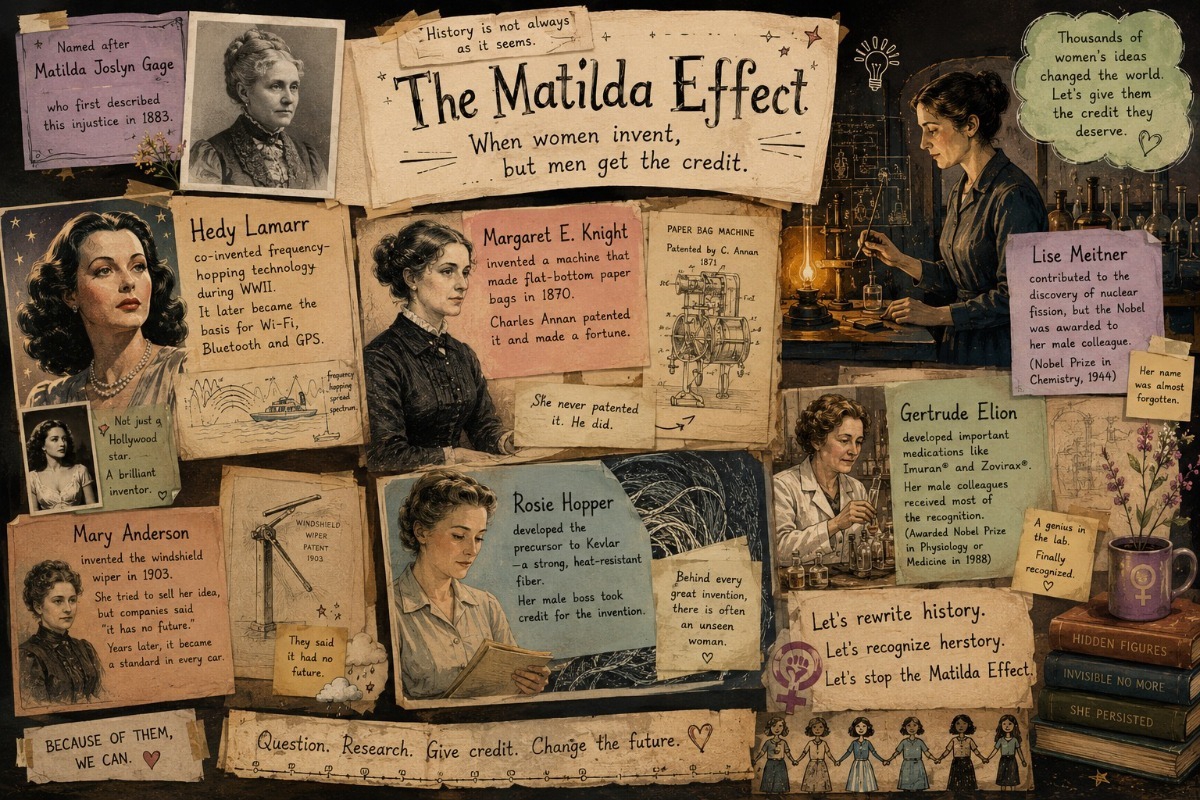 Named after
Matilda Joslyn Gage
who first described
this injustice in 1883.
History is not always
as it seems.
The Matilda Effect
When women invent,
but men get the credit.
Thousands of
women's ideas
changed the world.
Let's give them
the credit they
deserve.
Hedy Lamarr
co-invented frequency-
hopping technology
during WWII.
It later became the
basis for Wi-Fi,
Bluetooth and GPS.
frequency
hopping
spread
spectrum.
Not just a
Hollywood
star.
A brilliant
inventor.
Margaret E. Knight
invented a machine that
made flat-bottom paper
bags in 1870.
Charles Annan patented
it and made a fortune.
PAPER BAG MACHINE
Patented by C. Annan
1871
She never patented
it. He did.
Lise Meitner
contributed to the
discovery of nuclear
fission, but the Nobel
was awarded to
her male colleague.
(Nobel Prize in
Chemistry, 1944)
Her name
was almost
forgotten.
Mary Anderson
invented the windshield
wiper in 1903.
She tried to sell her idea,
but companies said
"it has no future."
Years later, it became
a standard in every car.
WINDSHIELD
WIPER
PATENT
1903
They said
it had no
future.
Rosie Hopper
developed the
precursor to Kevlar
—a strong, heat-resistant
fiber.
Her male boss took
credit for the invention.
Behind every
great invention,
there is often
an unseen
woman.
Gertrude Elion
developed important
medications like
Imuran® and Zovirax®.
Her male colleagues
received most of
the recognition.
(Awarded Nobel Prize
in Physiology or
Medicine in 1988)
A genius in
the lab.
Finally
recognized.
Let's rewrite history.
Let's recognize herstory.
Let's stop the Matilda Effect.
HIDDEN FIGURES
INVISIBLE NO MORE
SHE PERSISTED
BECAUSE OF THEM,
WE CAN.
Question. Research. Give credit. Change the future.